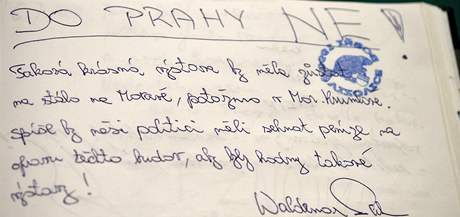 DO PRAHY NE!
Taková krásná výstava by měla zůstat
na stálo na Moravě, potažmo v Mor. Krumlově.
Spíše by naši politici měli sehnat peníze na
opravu těchto budov, aby byly hodny takové
výstavy!
Waldemar